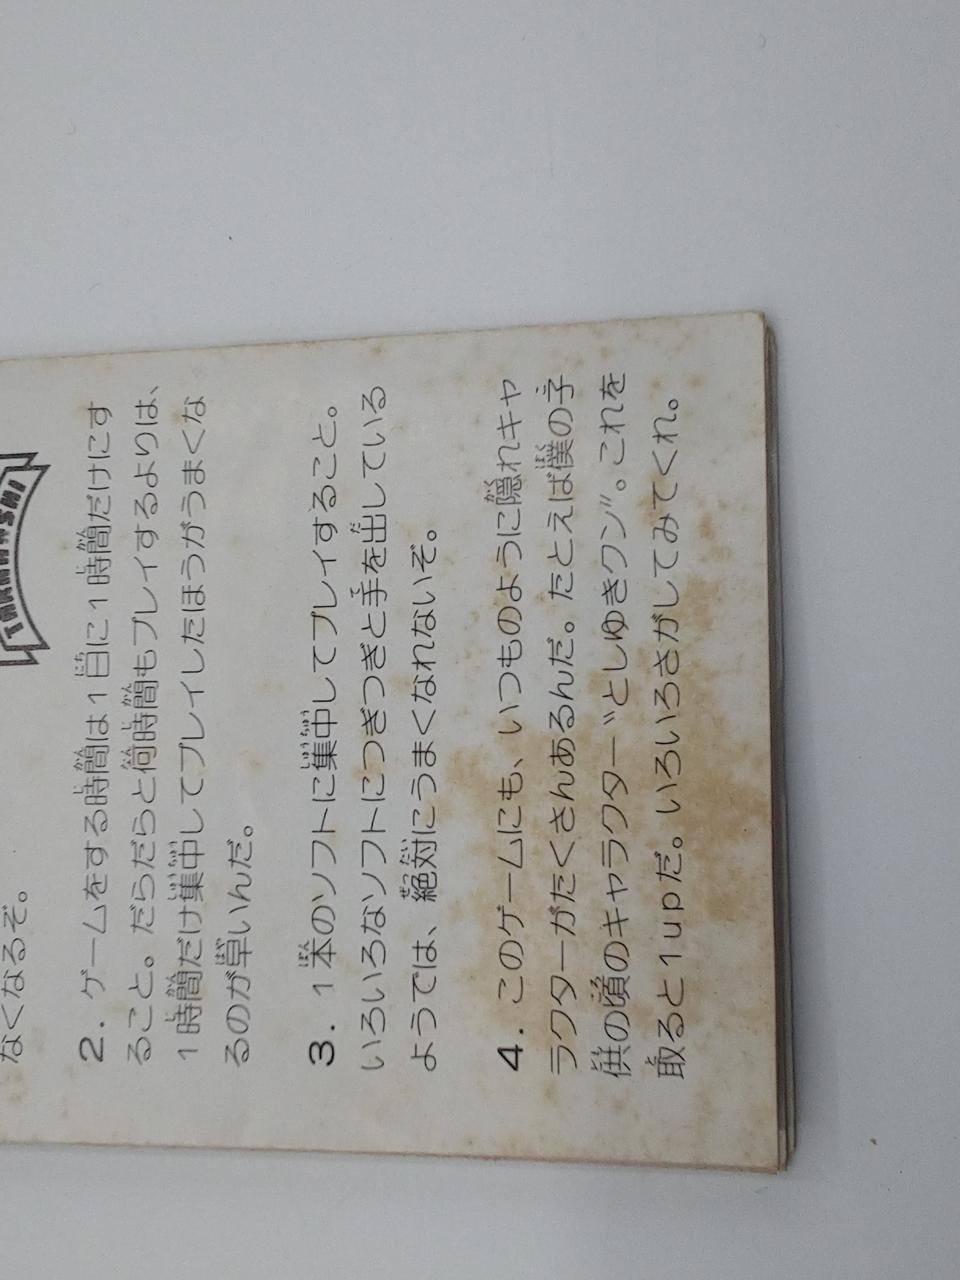 TAKAHASHI
なくなるぞ。
2. ゲームをする時間は1日に1時間だけにす
ること。だらだらと何時間もプレイするよりは、
1時間だけ集中してプレイしたほうがうまくな
るのが早いんだ。
3. 1本のソフトに集中してプレイすること。
いろいろなソフトにつぎつぎと手を出している
ようでは、絶対にうまくなれないぞ。
4. このゲームにも、いつものように隠れキャ
ラクターがたくさんあるんだ。たとえば僕の子
供の頃のキャラクター〝としゆきクン〟。これを
取ると1upだ。いろいろさがしてみてくれ。